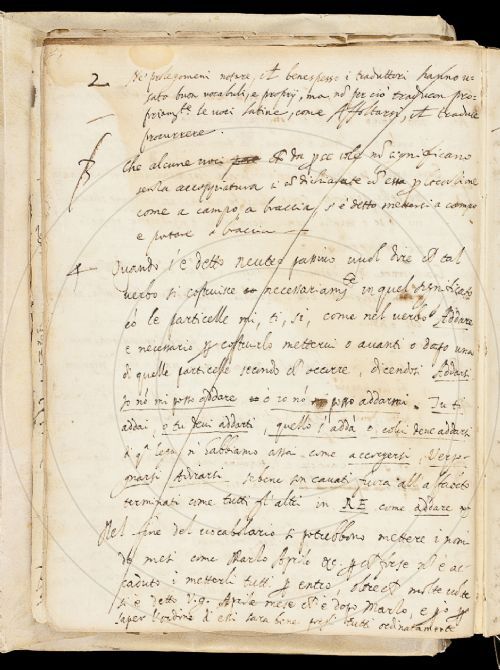 2 Ne' prolegomeni notare, che benespesso i traduttori hanno u-
sato buon vocaboli, e proprij, ma nō per ciò traducon pro-
priamte le voci latine, come Affoltarsi, che traduce
procurrere.
che alcune voci da per se sole nō significano
senza accompagnatura i
come a campo, a braccia, s'è detto mettersi a campo
e
4 Quando s'è detto neutro passivo vuol dire che tal
verbo si costruisce necessariamte in quel significato
cō le particelle mi, ti, si, come nel verbo Addare
è necessario per costruirlo mettervi o avanti o dopo una
di quelle particelle secondo che occorre, dicendosi Addarsi
Io nō mi posso addare e io nō posso addarmi. Tu ti
addai, o tu devi addarti, quello s'addà o colui deve addarsi
di qta n'habbiamo assai come accorgersi,
sebene son cavati fuora all'
terminati come tutti gl'altri in RE come addare
Nel fine del vocabolario si potrebbono mettere i nomi
de mesi come Marzo Aprile &c. che forse nō è ac-
caduto i metterli tutti per entro, oltreche molte volte
si è detto v.g. Aprile mese che è dopo Marzo, e pō per
saper l'ordine di essi sara bene porli tutti ordinatamente